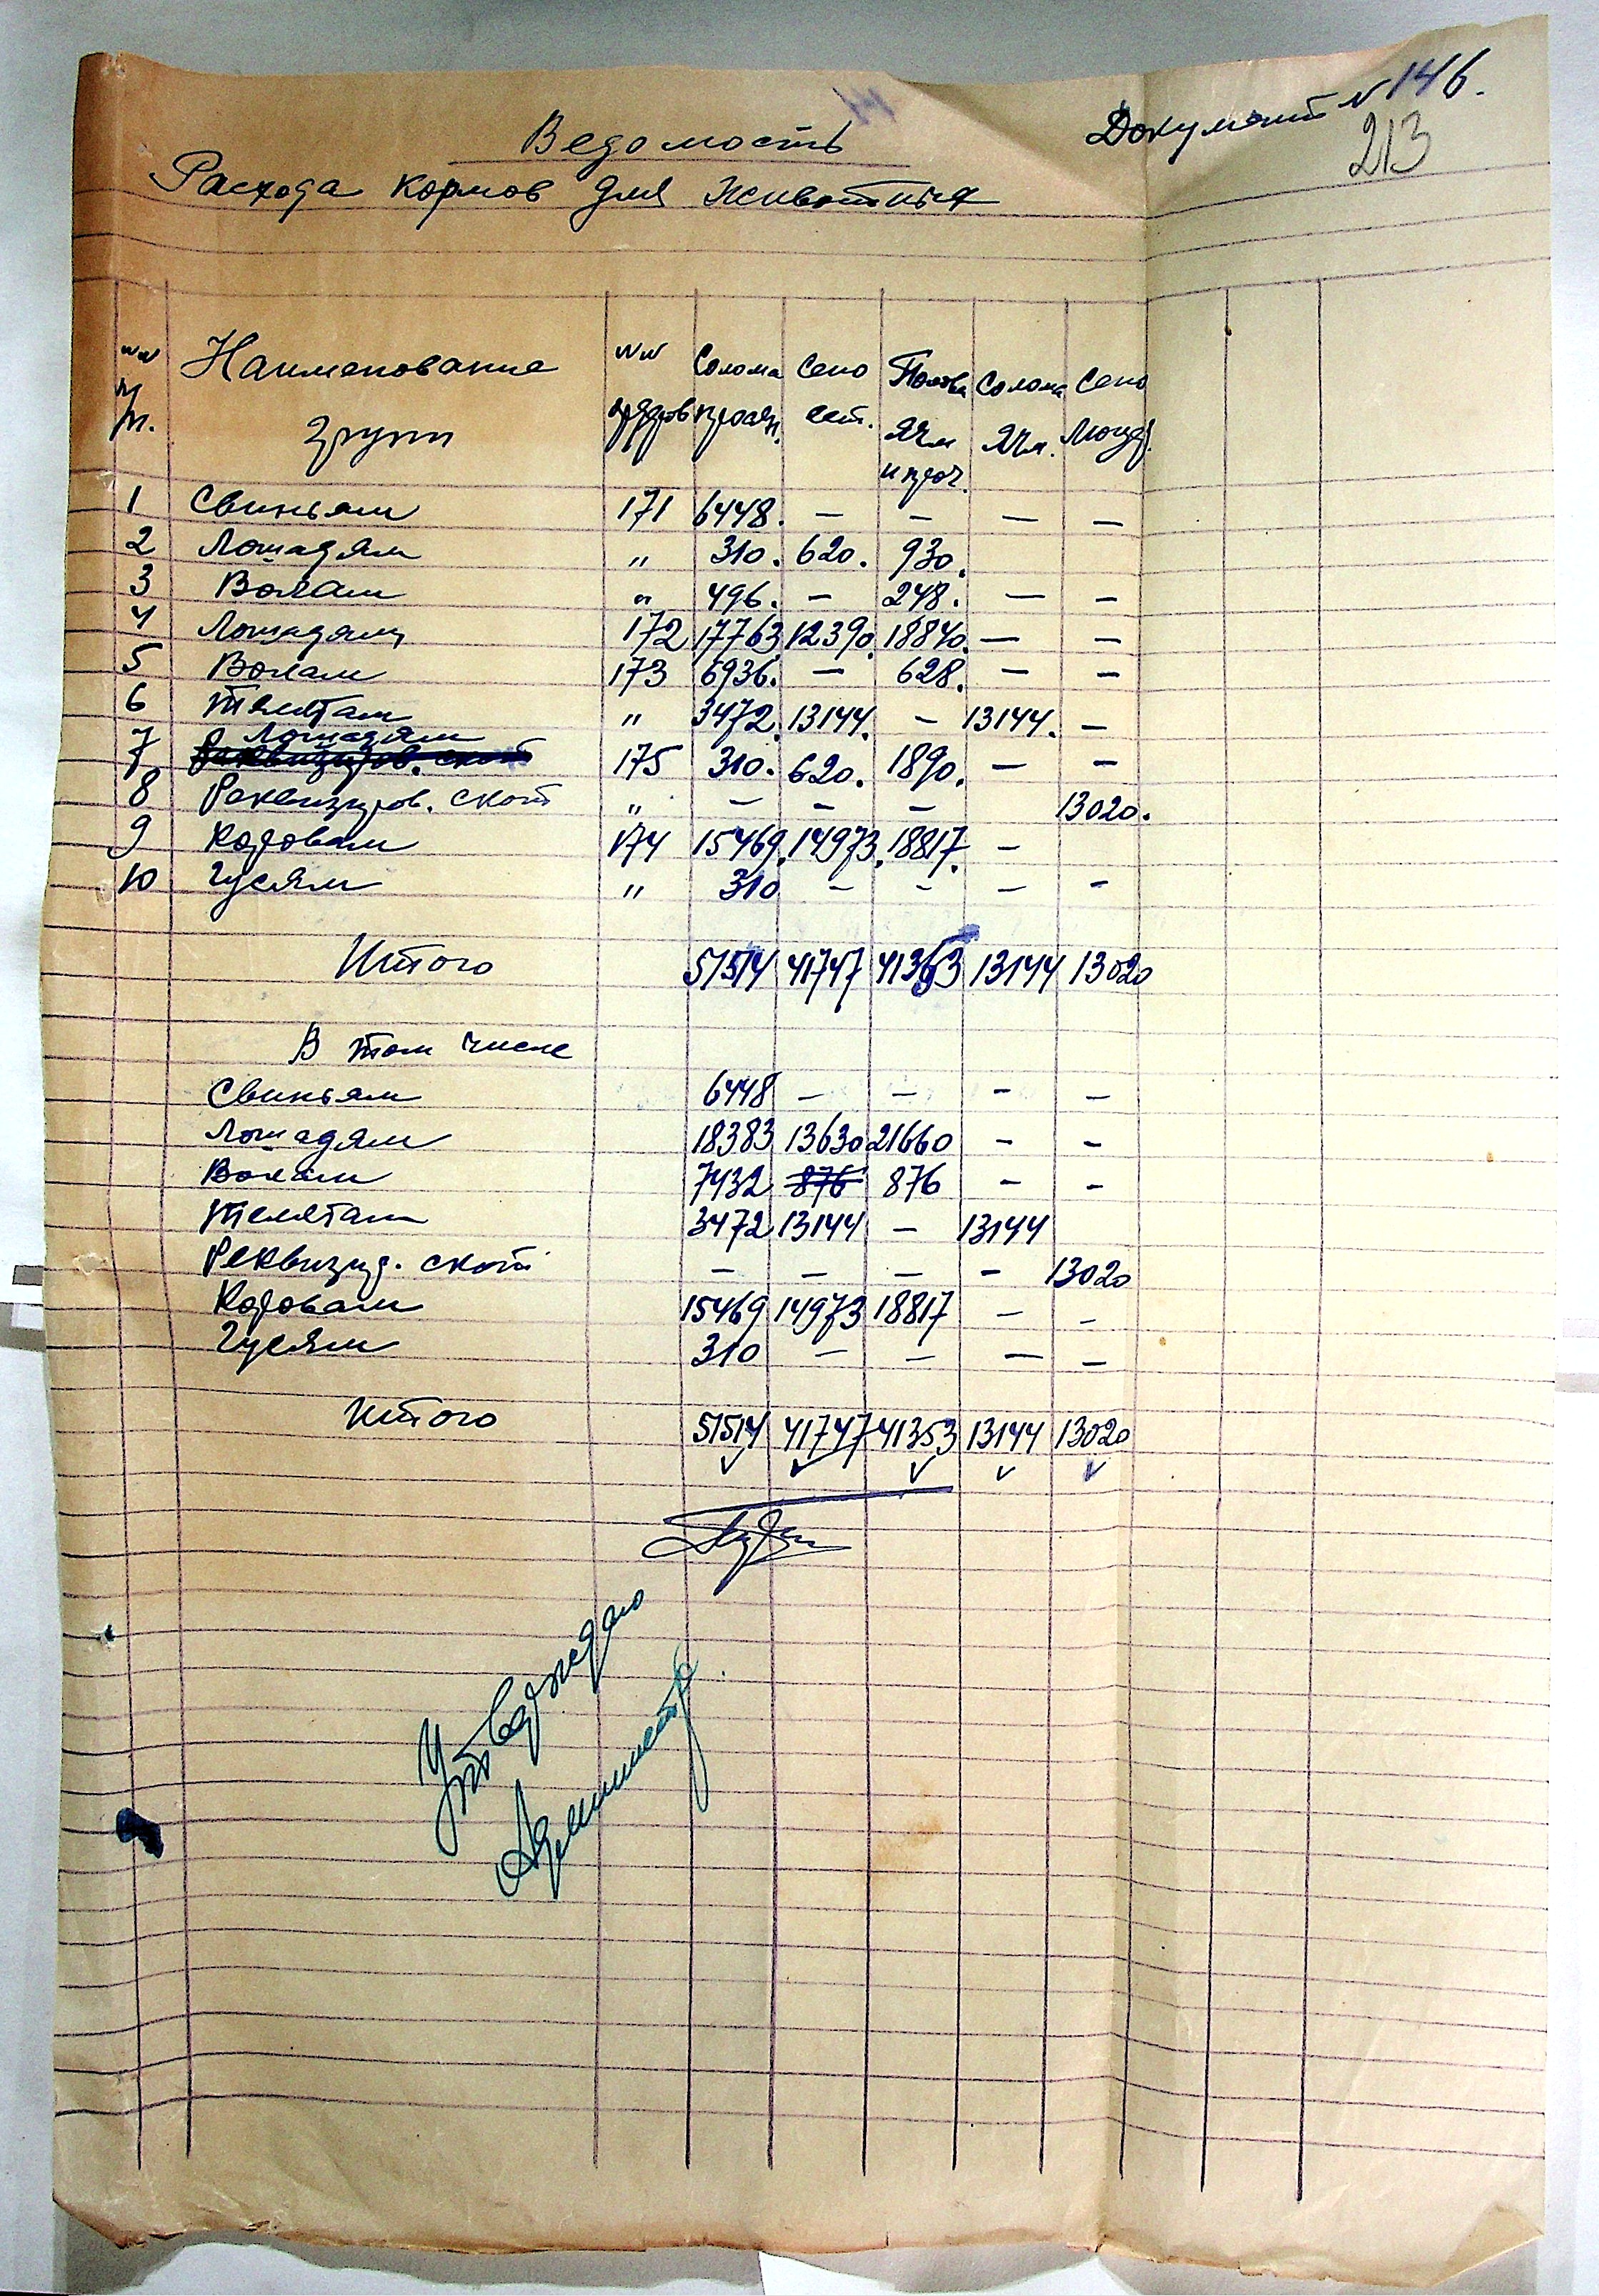 Документ № 146.
213
Ведомость
Расхода кормов для животных
№№ п/п. Наименование групп №№ ордеров Солома просян. Сено ест. Полова Ячм и проч. Солома Ячм. Сено Могар.
1 Свиньям 171 6448. — — — —
2 Лошадям " 310. 620. 930.
3 Волам " 496. — 248. — —
4 Лошадям 172 17763 12390. 18840. — —
5 Волам 173 6936. — 628. — —
6 Телятам " 3472. 13144. — 13144. —
7 Лошадям 175 310. 620. 1890. — —
Реквизиров. скот
8 Реквизиров. скот " — — — 13020.
9 Коровам 174 15469. 14973. 18817. —
10 Гусям " 310 — — — —
Итого 51514 41747 41353 13144 13020
В том числе
Свиньям 6448 — — — —
Лошадям 18383 13630 21660 — —
Волам 7432 876 876 — —
Телятам 3472 13144 — 13144
Реквизир. скот — — — — 13020
Коровам 15469 14973 18817 — —
Гусям 310 — — — —
Итого 51514 41747 41353 13144 13020
Утверждаю